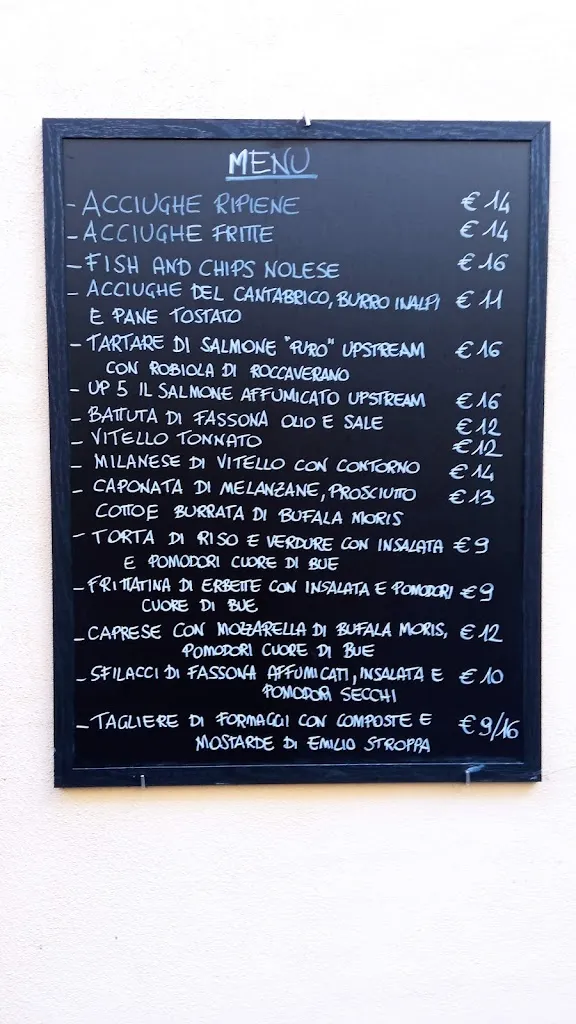 MENU
- ACCIUGHE RIPIENE € 14
- ACCIUGHE FRITTE € 14
- FISH AND CHIPS NOLESE € 16
- ACCIUGHE DEL CANTABRICO, BURRO INALPI € 11
E PANE TOSTATO
- TARTARE DI SALMONE "PURO" UPSTREAM € 16
CON ROBIOLA DI ROCCAVERANO
- UP 5 IL SALMONE AFFUMICATO UPSTREAM € 16
- BATTUTA DI FASSONA OLIO E SALE € 12
- VITELLO TONNATO € 12
- MILANESE DI VITELLO CON CONTORNO € 14
- CAPONATA DI MELANZANE, PROSCIUTTO € 13
COTTO E BURRATA DI BUFALA MORIS
- TORTA DI RISO E VERDURE CON INSALATA € 9
E POMODORI CUORE DI BUE
- FRITTATINA DI ERBETTE CON INSALATA E POMODORI € 9
CUORE DI BUE
- CAPRESE CON MOZZARELLA DI BUFALA MORIS, € 12
POMODORI CUORE DI BUE
- SFILACCI DI FASSONA AFFUMICATI, INSALATA E € 10
POMODORI SECCHI
- TAGLIERE DI FORMAGGI CON COMPOSTE E € 9/16
MOSTARDE DI EMILIO STROPPA